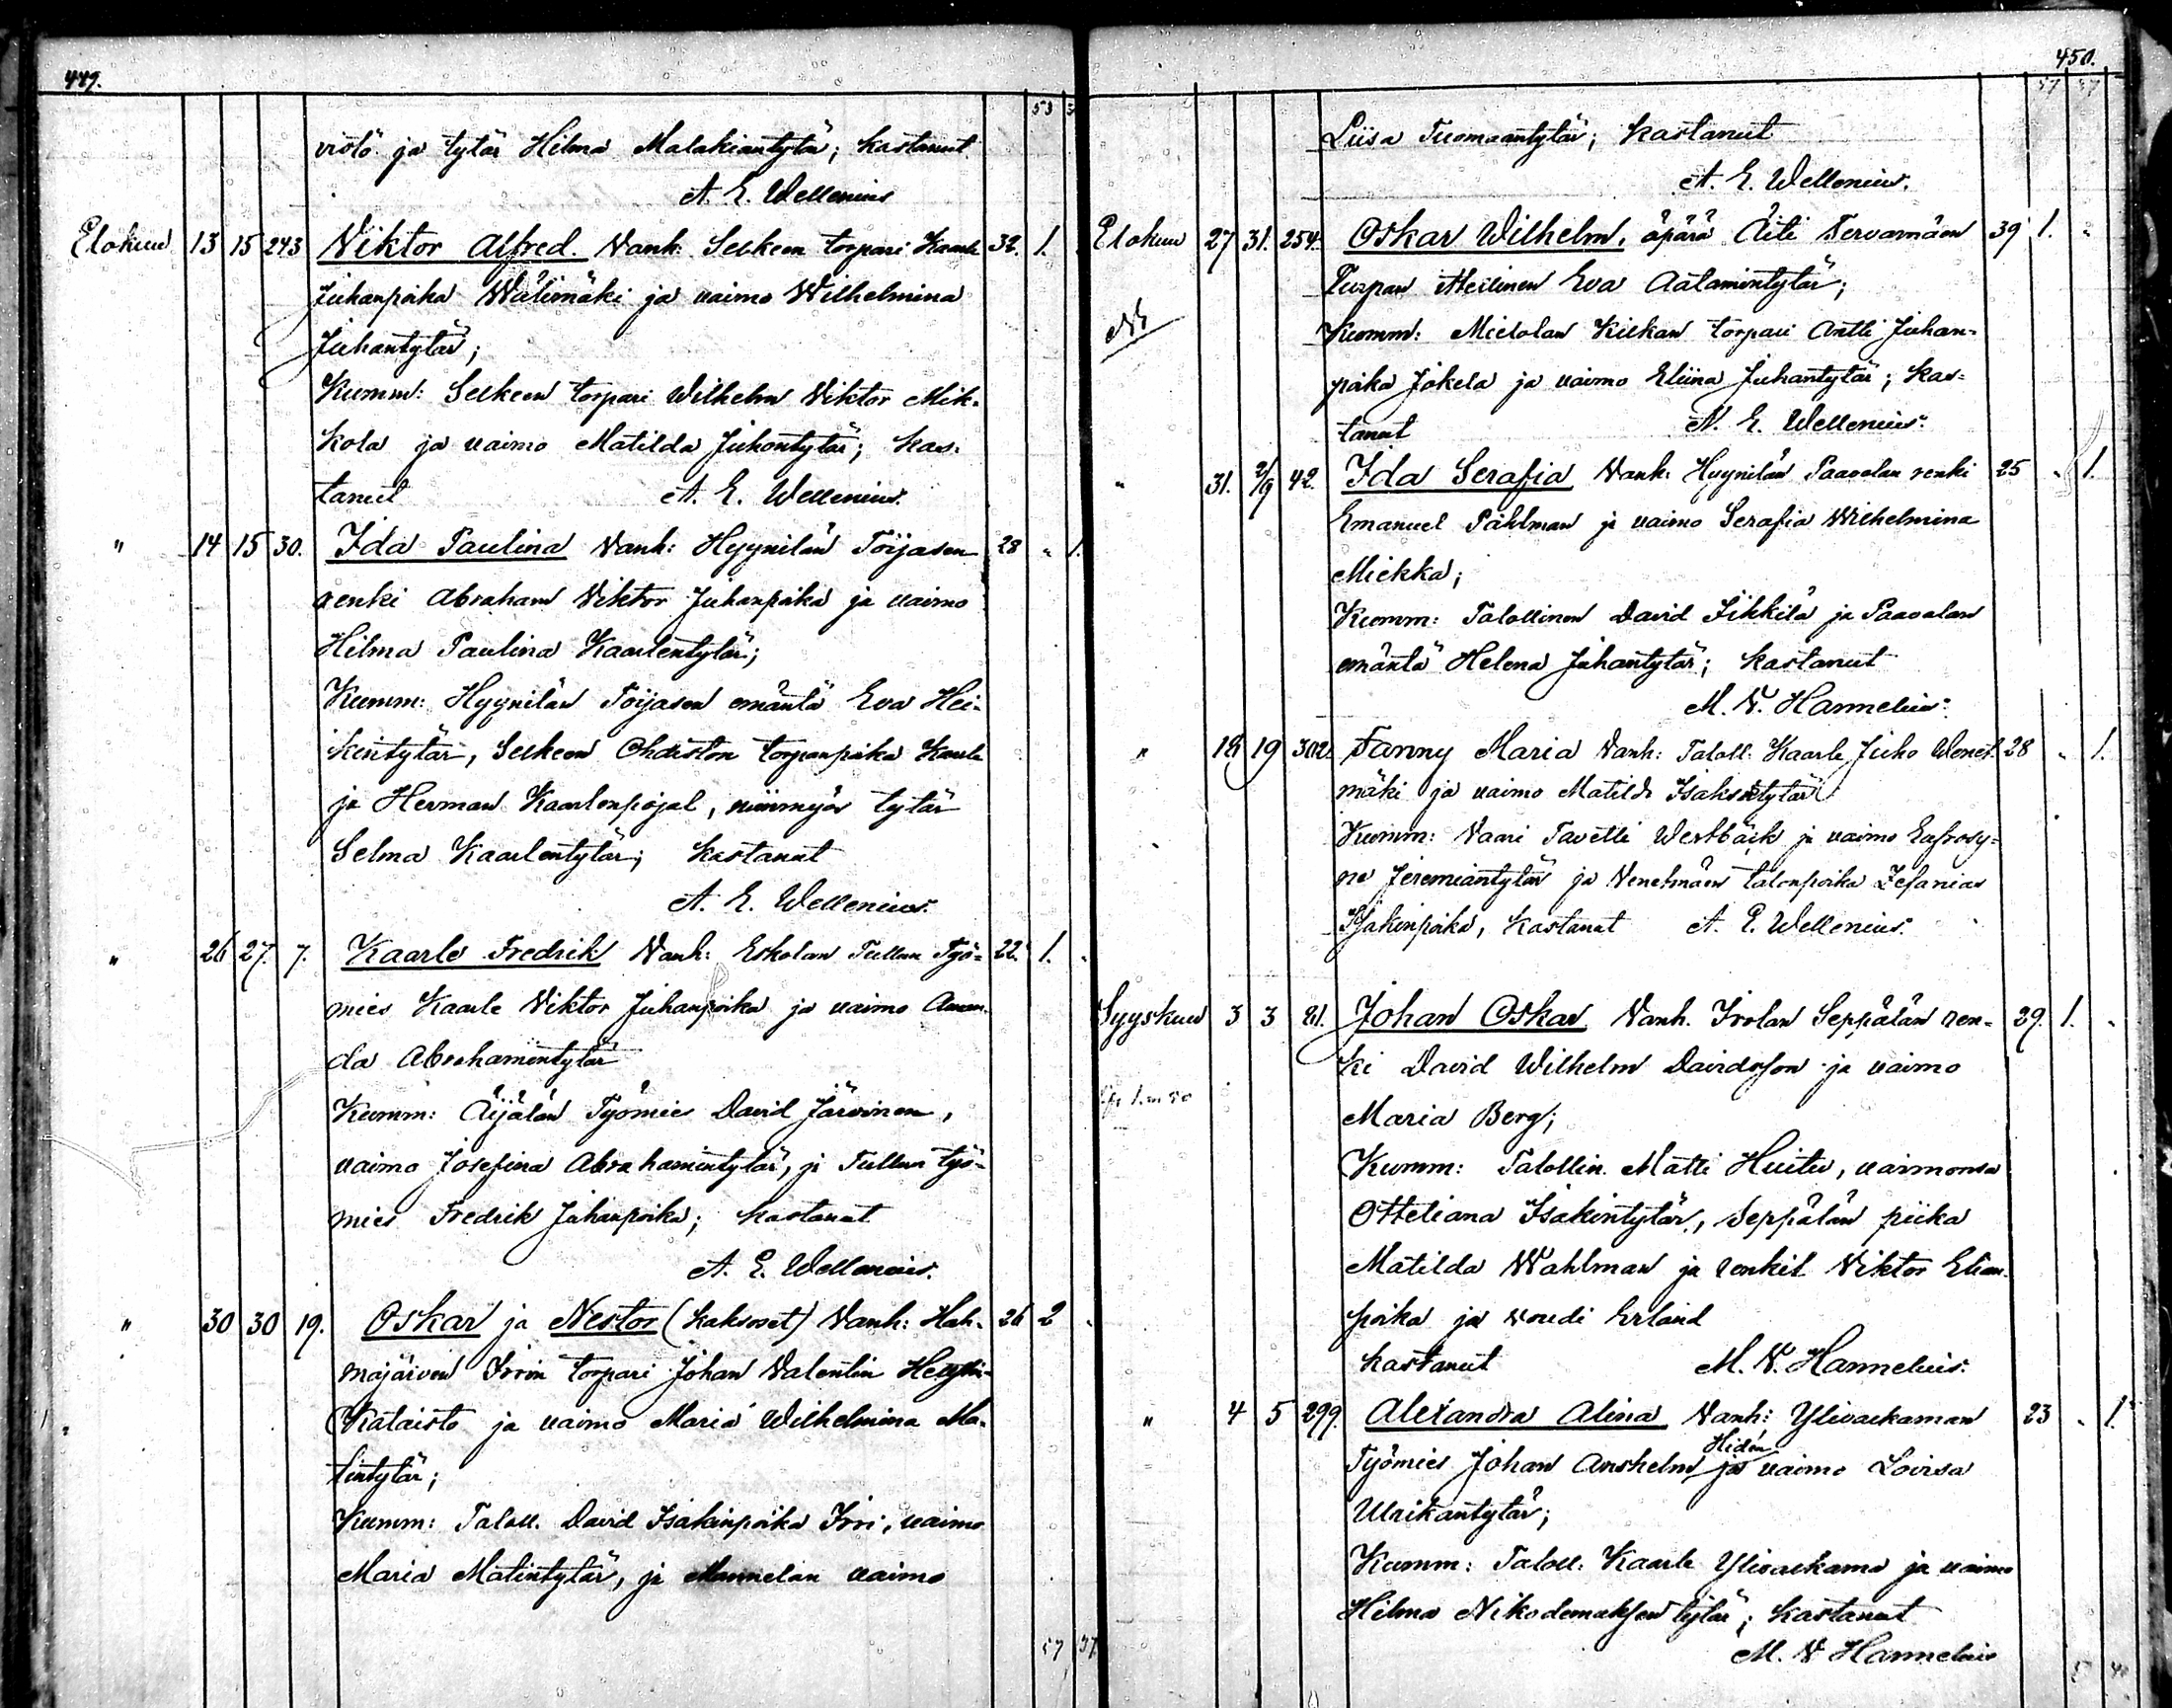 449.
53
wistö ja tytär Hilma Malakiantytär; kastanut
A. E. Wellenius
Elokuu 13 15 243 Viktor Alfred. Vanh: Selkeen torpari Kaarle 32. 1.
Juhanpoika Wälimäki ja vaimo Wilhelmina
Juhantytär;
Kumm: Selkeen torpari Wilhelm Viktor Mik-
kola ja vaimo Matilda Juhontytär; kas-
tanut A. E. Wellenius.
" 14 15 30. Ida Paulina Vanh: Hyynilän Toijasen 28 " 1.
renki Abraham Viktor Juhanpoika ja vaimo
Hilma Paulina Kaarlentytär;
Kumm: Hyynilän Toijasen emäntä Eva Hei-
kintytär, Selkeen Ohdiston torpanpoika Kaarle
ja Herman Kaarlenpojat, niinmyös tytär
Selma Kaarlentytär; kastanut
A. E. Wellenius.
" 26 27. 7. Kaarle Fredrik Vanh: Eskolan Tullan Työ- 22. 1.
mies Kaarle Viktor Juhanpoika ja vaimo Aman-
da Abrahamintytär
Kumm: Äijälän Työmies David Järvinen,
vaimo Josefina Abrahamintytär, ja Tullan työ-
mies Fredrik Juhanpoika; kastanut
A. E. Wellenius.
" 30 30 19. Oskar ja Nestor (kaksoset) Vanh: Hah- 26 2
majärven Irrin torpari Johan Valentin
Kataisto ja vaimo Maria Wilhelmina Ma-
tintytär;
Kumm: Taloll. David Isakinpoika Irri, vaimo
Maria Matintytär, ja Mannelan vaimo
57 37.
450.
57 37
Liisa Tuomaantytär; kastanut
A. E. Wellenius.
Elokuu 27 31. 254. Oskar Wilhelm, äpärä Äiti Tervamäen 39 1. "
Turpan itsellinen Eva Aatamintytär;
Kumm: Mietolan Kiikan torpari Antti Juhan-
poika Jokela ja vaimo Eliina Juhantytär; kas-
tanut A. E. Wellenius.
" 31. 2/9 42. Ida Serafia Vanh: Hyynilän Paavolan renki 25 " 1.
Emanuel Påhlman ja vaimo Serafia Wilhelmina
Miekka;
Kumm: Talollinen David Iikkilä ja Paavolan
emäntä Helena Juhantytär; kastanut
M. V. Hannelius.
" 18 19 302. Fanny Maria Vanh: Taloll. Kaarle Juho Wenet- 28 " 1.
mäki ja vaimo Matilda Isaksintytär
Kumm: Vaari Tavetti Westbäck ja vaimo Eufrosy-
ne Jeremiantytär ja Venetmäen talonpoika Zefanias
Isakinpoika, kastanut A. E. Wellenius.
Syyskuu 3 3 21. Johan Oskar. Vanh. Isolan Seppälän ren- 29. 1. "
ki David Wilhelm Davidsson ja vaimo
Maria Berg;
Kumm: Talollin. Matti Huitu, vaimonsa
Otteliana Isakintytär, Seppälän piika
Matilda Wahlman ja renkit Viktor Elian-
poika ja voudi Erland
kastanut M. V. Hannelius.
" 4 5 299. Alexandra Alina Vanh: Ylivaekaman 23 " 1.
Hidén
Työmies Johan Anshelm ja vaimo Lovisa
Ulrikantytär;
Kumm: Taloll. Kaarle Ylivaekama ja vaimo
Hilma Nikodemuksentytär; kastanut
M. V. Hannelius